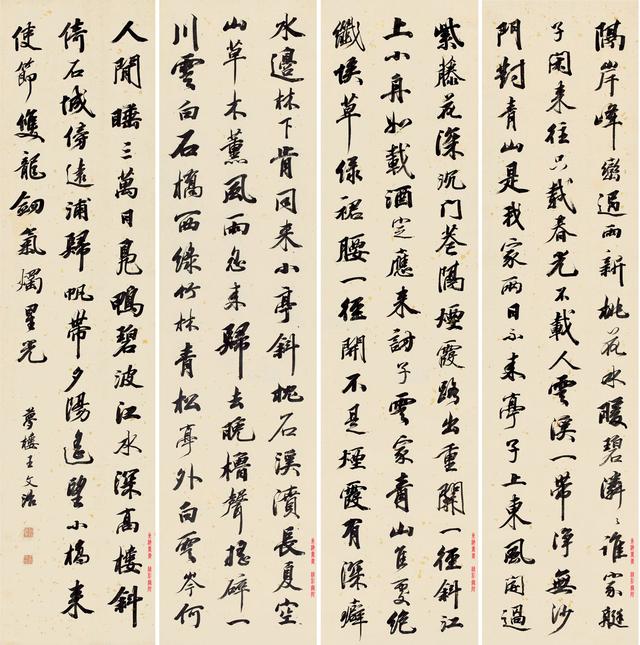 隔岸峰巒過雨新桃花水暖碧潾々誰家艇
子閒来往只載春光不載人雲溪一帶淨無沙
門對青山是我家兩日不来亭子上東風開過
紫藤花深沉門巷隔煙霞路出重關一徑斜江
上小舟如載酒定應来訪子雲家青山更絶
纖埃草緑裙腰一徑開不是煙霞有深癖
水邊林下肯同来小亭斜枕石溪濆長夏空
山草木薰風雨忽来歸去晚櫓聲搖碎一
川雲白石橋西綠竹林青松亭外白雲岑何
人閒睡三萬日鳧鴨碧波江水深高樓斜
倚石城傍遠浦歸帆帶夕陽遥望小橋来
使節雙龍劒氣燭星光
夢樓王文治